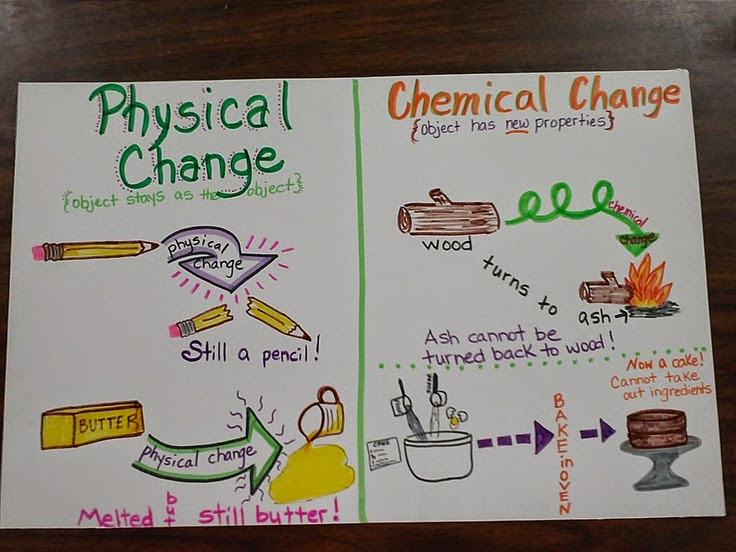 Physical
Change
{object stays as the object}
physical
change
Still a pencil!
BUTTER
physical change
Melted but still butter!
Chemical Change
{object has new properties}
wood
chemical
change
turns to
ash
Ash cannot be
turned back to wood!
CAKE
BAKE in OVEN
Now a cake!
Cannot take
out ingredients